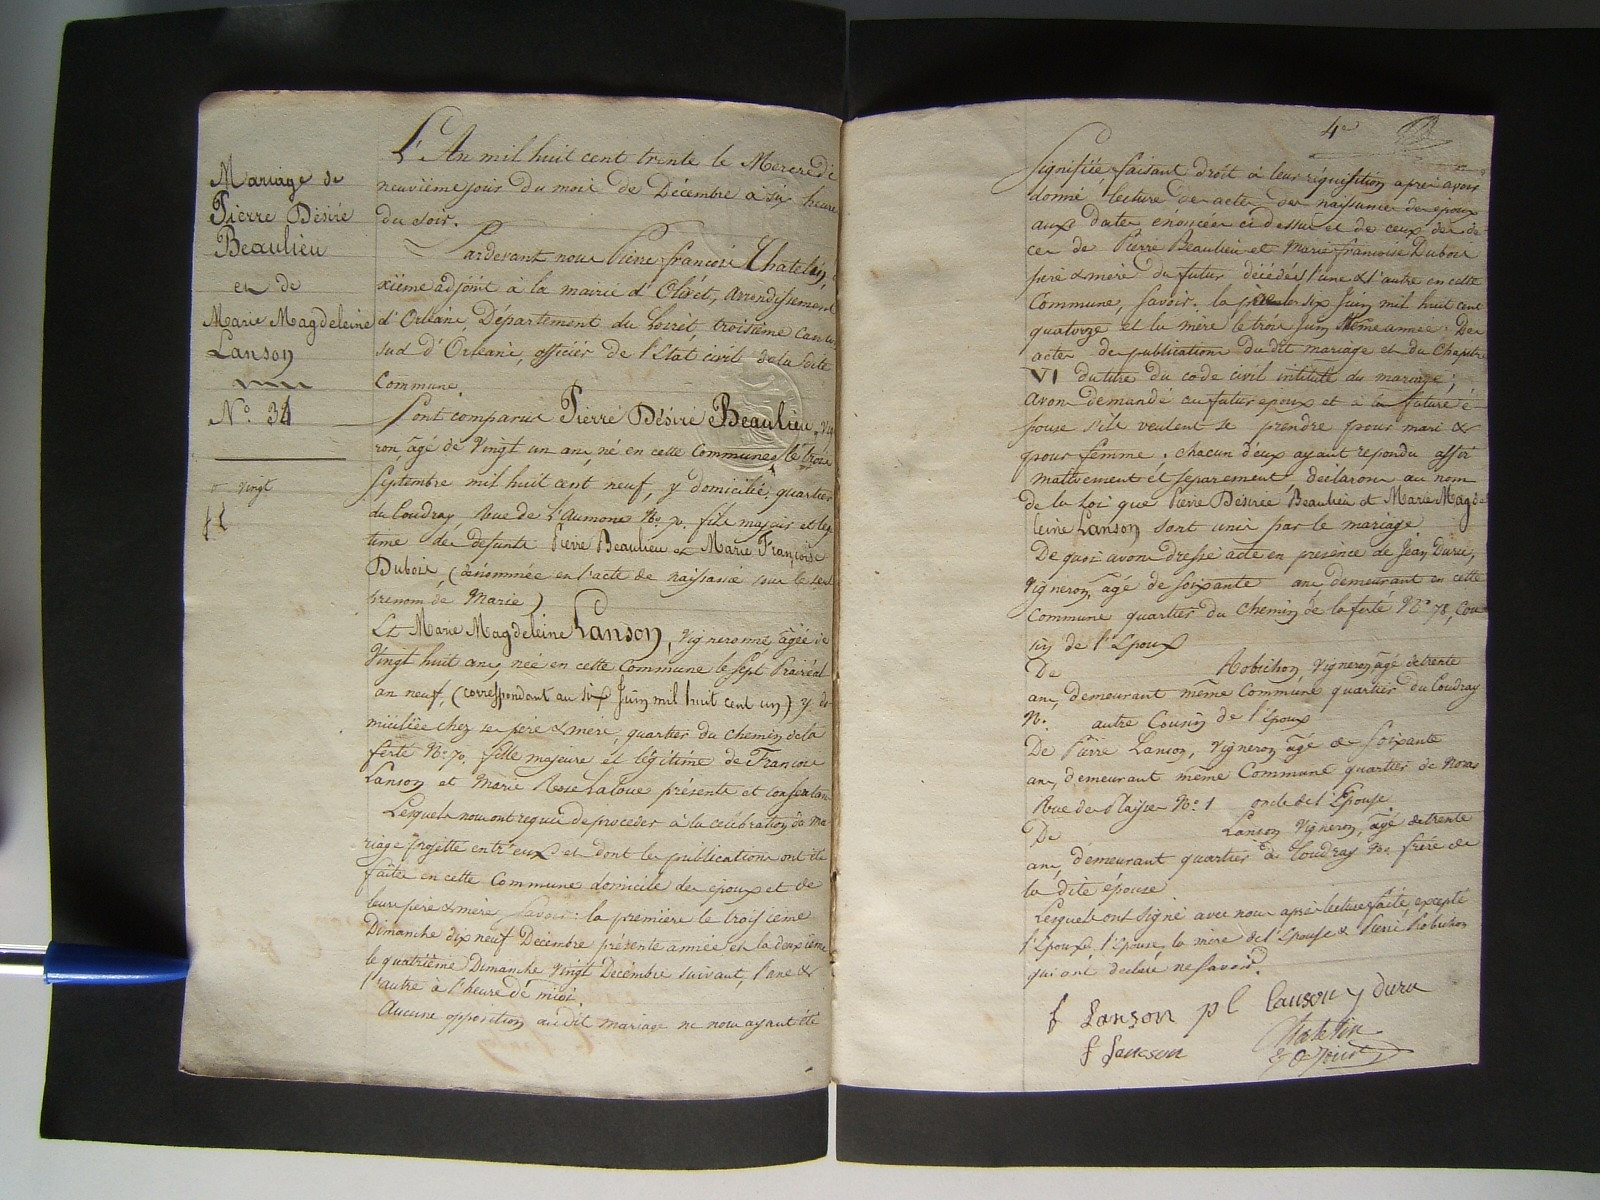 Mariage de
Pierre Désiré
Beaulieu
et de
Marie Magdeleine
Lanson
N.° 34
vingt
L'An mil huit cent trente le Mercredi
neuvième jour du mois de Décembre à six heures
du soir.
Pardevant nous Pierre françois Chatelin,
xième adjoint à la mairie d'Olivet, arrondissement
d'Orléans, Département du Loiret, troisième canton
sud d'Orléans, officier de l'Etat civil de la dite
Commune
Sont comparus Pierre Désiré Beaulieu, vig
ron, âgé de vingt un ans, né en cette Commune, le trois
Septembre mil huit cent neuf, y domicilié, quartier
du Coudray, Rue de L'Aumone N.° 7. fils majeur et legi
time de defunts Pierre Beaulieu et Marie Françoise
Dubois (dénommée en l'acte de naissance sous le seul
prenom de Marie)
Et Marie Magdeleine Lanson, vigneronne âgée de
vingt huit ans, née en cette Commune le sept Prairéal
an neuf, (correspondant au six Juin mil huit cent un) y do
miciliée chez ses père & mère, quartier du chemin de la
ferté N.° 70. fille majeure et légitime de François
Lanson et Marie Rose Laloue présents et consentans
Lesquels nous ont requis de proceder à la celebration du ma
riage projetté entr'eux et dont les publications ont été
faites en cette Commune domicile des époux et de
leurs père & mère, Savoir: la première le troisième
Dimanche dix neuf Décembre présente année et la deuxième
le quatrième Dimanche vingt Décembre suivant, l'une &
l'autre à l'heure de midi.
Aucune opposition audit mariage ne nous ayant été
4e
Signifiée, faisant droit à leur réquisition après avoir
donné lecture des actes de naissance des époux
aux dates énoncées ci dessus et de ceux de dé-
cès de Pierre Beaulieu et Marie françoise Dubois
père & mère du futur décédés l'une & l'autre en cette
Commune, savoir: le six Juin mil huit cent
quatorze et la mère le trois Juin même année. Des
actes de publications du dit mariage et du Chapitre
VI du titre du code civil intitulé du mariage;
avons demandé au futur epoux et à la future é-
pouse s'ils veulent se prendre pour mari &
pour femme; chacun d'eux ayant repondu affir
mativement et séparement, déclarons au nom
de la Loi que Pierre Désirée Beaulieu et Marie Magde
leine Lanson sont unis par le mariage
De quoi avons dressé acte en presence de Jean Duru,
vigneron, âgé de soixante ans, demeurant en cette
Commune quartier du chemin de la ferté N.° 78, Cou
sin de l'Epoux
De Robichon vigneron âgé de trente
ans, demeurant même Commune quartier du Coudray
N.° autre Cousin de l'Epoux
De Pierre Lanson, vigneron âgé de soixante
ans, demeurant même Commune quartier de
Rue de N.° 1 oncle de l'Epouse.
De Lanson vigneron, âgé de trente
ans, demeurant quartier du Coudray N.° frère de
la dite épouse
Lesquels ont signé avec nous après lecture faite, excepté
l'Epoux, l'Epouse, la mère de l'Epouse & Pierre Robichon
qui ont déclaré ne savoir.
f Lanson p l Lanson j duru
f Lanson Chatelin